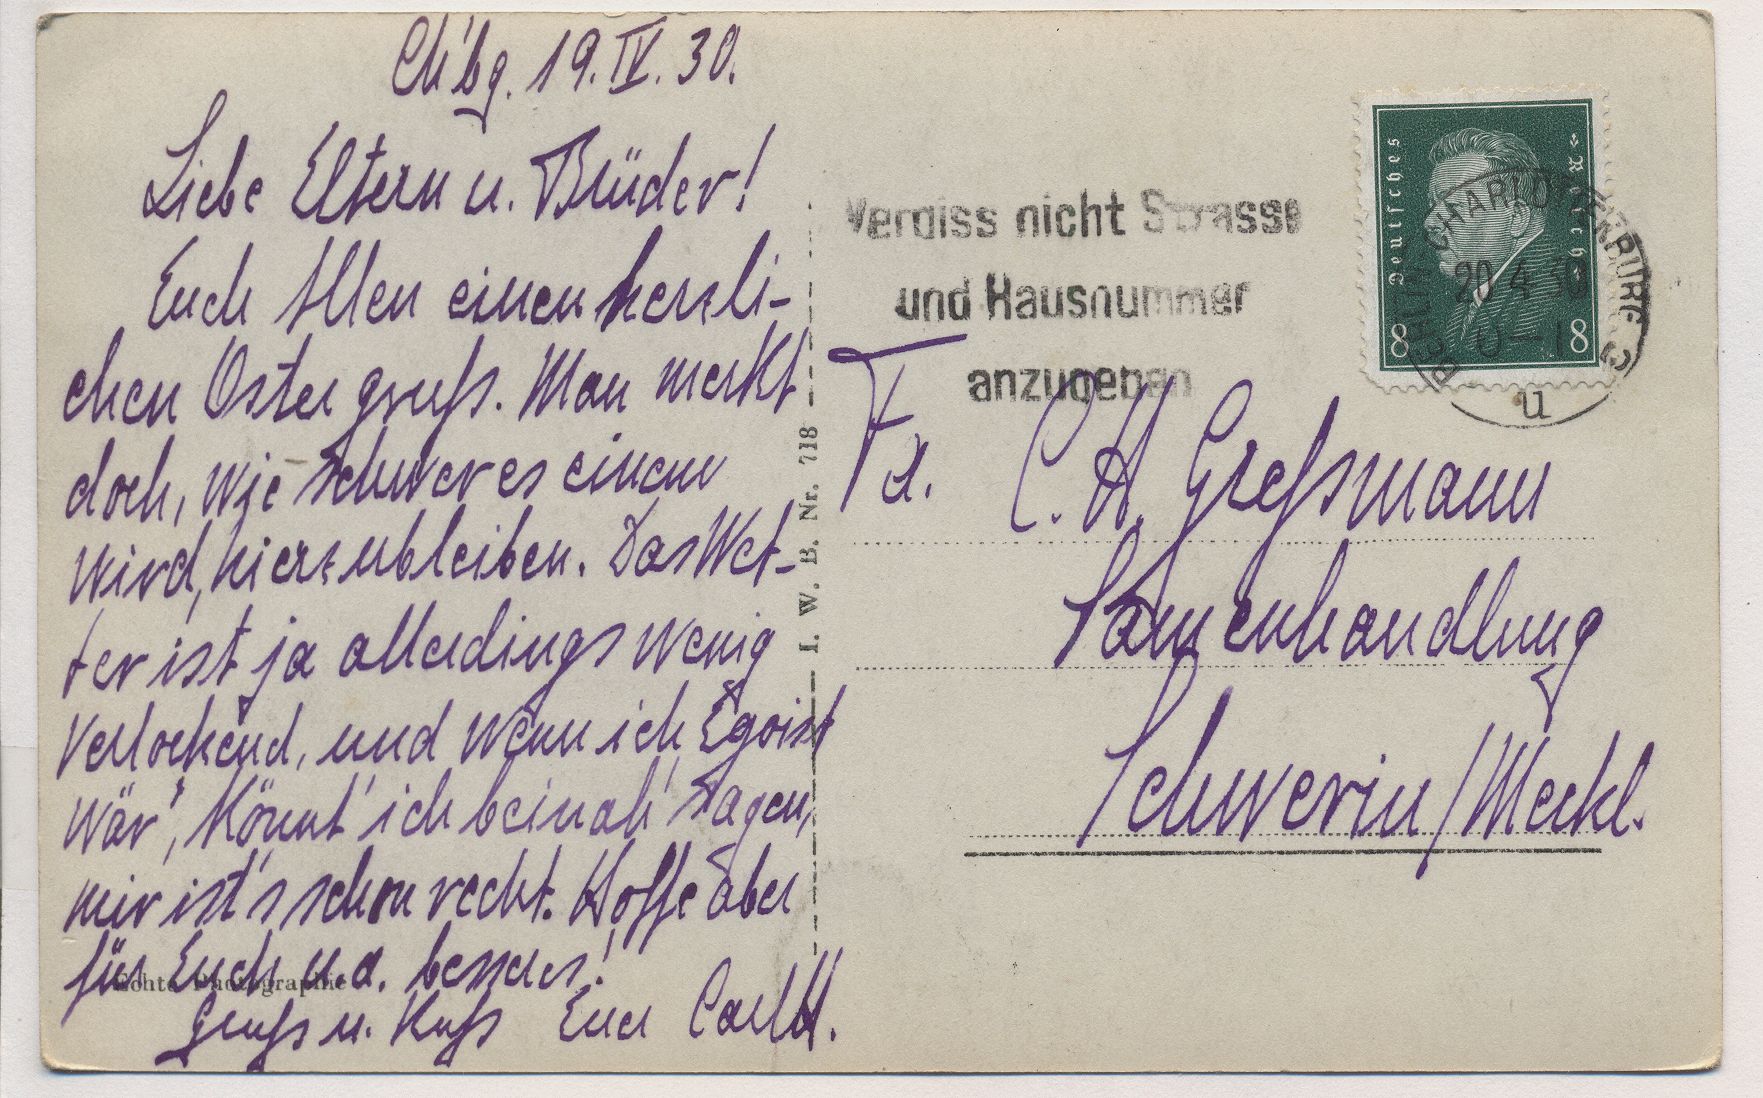 Ch'bg. 19. IV. 30.
Liebe Eltern u. Brüder!
Euch Allen einen herzli-
chen Ostergruß. Man merkt
doch, wie schwer es einem
wird, hierzubleiben. Das Wet-
ter ist ja allerdings wenig
verlockend, und wenn ich Egoist
wär', könnt' ich beinah' sagen,
mir ist's schon recht. Hoffe aber
für Euch u. a. besseres!
Gruß u. Kuß Euer Carl H.
Echte Photographie
I. W. B. Nr. 718
Vergiss nicht Strasse
und Hausnummer
anzugeben
Deutsches Reich
8 8
BERLIN-CHARLOTTENBURG 2
20.4.30
u
Fa. C. H. Greßmann
Samenhandlung
Schwerin/Meckl.